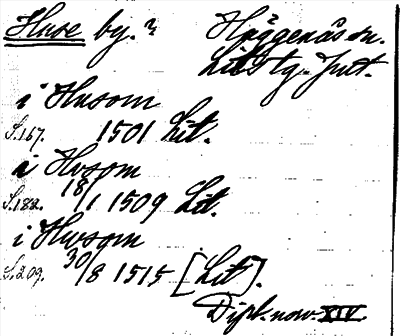 Huse by.? Häggenås sn.
Lits tg. Jmt.
i Husom
S.167. 1501 Lit.
i Hvsom
S.182. 18/1 1509 Lit.
i Hwsom
S.209. 30/8 1515 [Lit].
Dipl. nov. XIV.